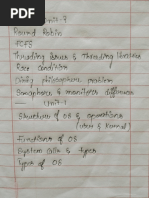 Unit-7
Round Robin
FCFS
Threading Issues & Threading libraries
Race Condition
Dining philosophers problem
Semaphores & monitors difference
Unit-1
Structure of OS & operations
(User & Kernel)
Functions of OS
System Calls & types
Types of OS